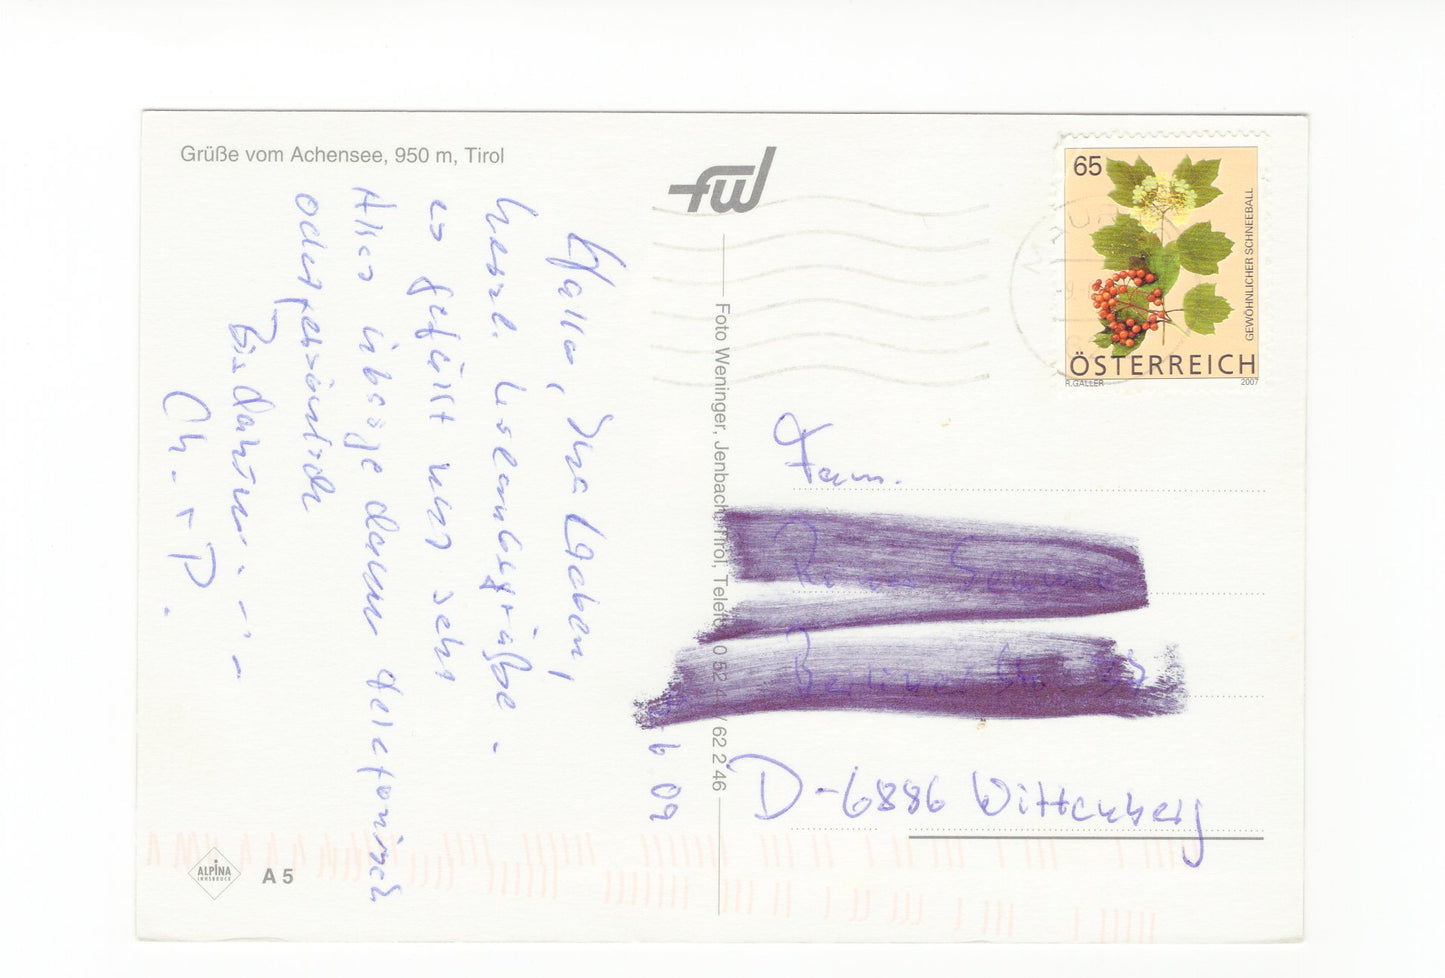 Grüße vom Achensee, 950 m, Tirol
fw
65
GEWÖHNLICHER SCHNEEBALL
ÖSTERREICH
R.GALLER 2007
Hallo, Ihr Lieben,
herzl. Urlaubsgrüße. -
es gefällt uns sehr
Alles übrige dann telefonisch
oder persönlich
Bis dahin - - - -
Ch. + P.
09
Foto Weninger, Jenbach, Tirol, 62 2 46
Fam.
D-6886 Wittenberg
ALPINA
INNSBRUCK
A 5